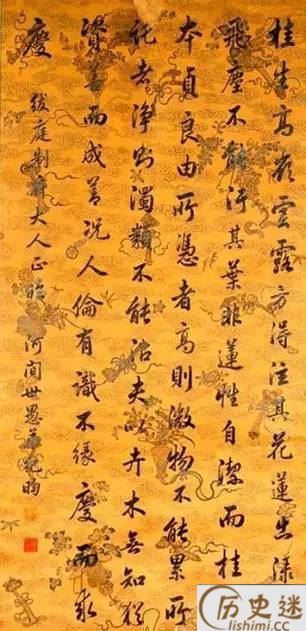 桂生高嶺雲露方得泫其花蓮出淥
飛塵不能污其葉非蓮性自潔而桂
本貞良由所憑者高則微物不能累所
託者淨則濁類不能沾夫以卉木無知猶
資善而成善況人倫有識不緣慶而求
慶
紱庭制府大人正臨 河間世愚弟紀昀
历史迷
lishimi.cc